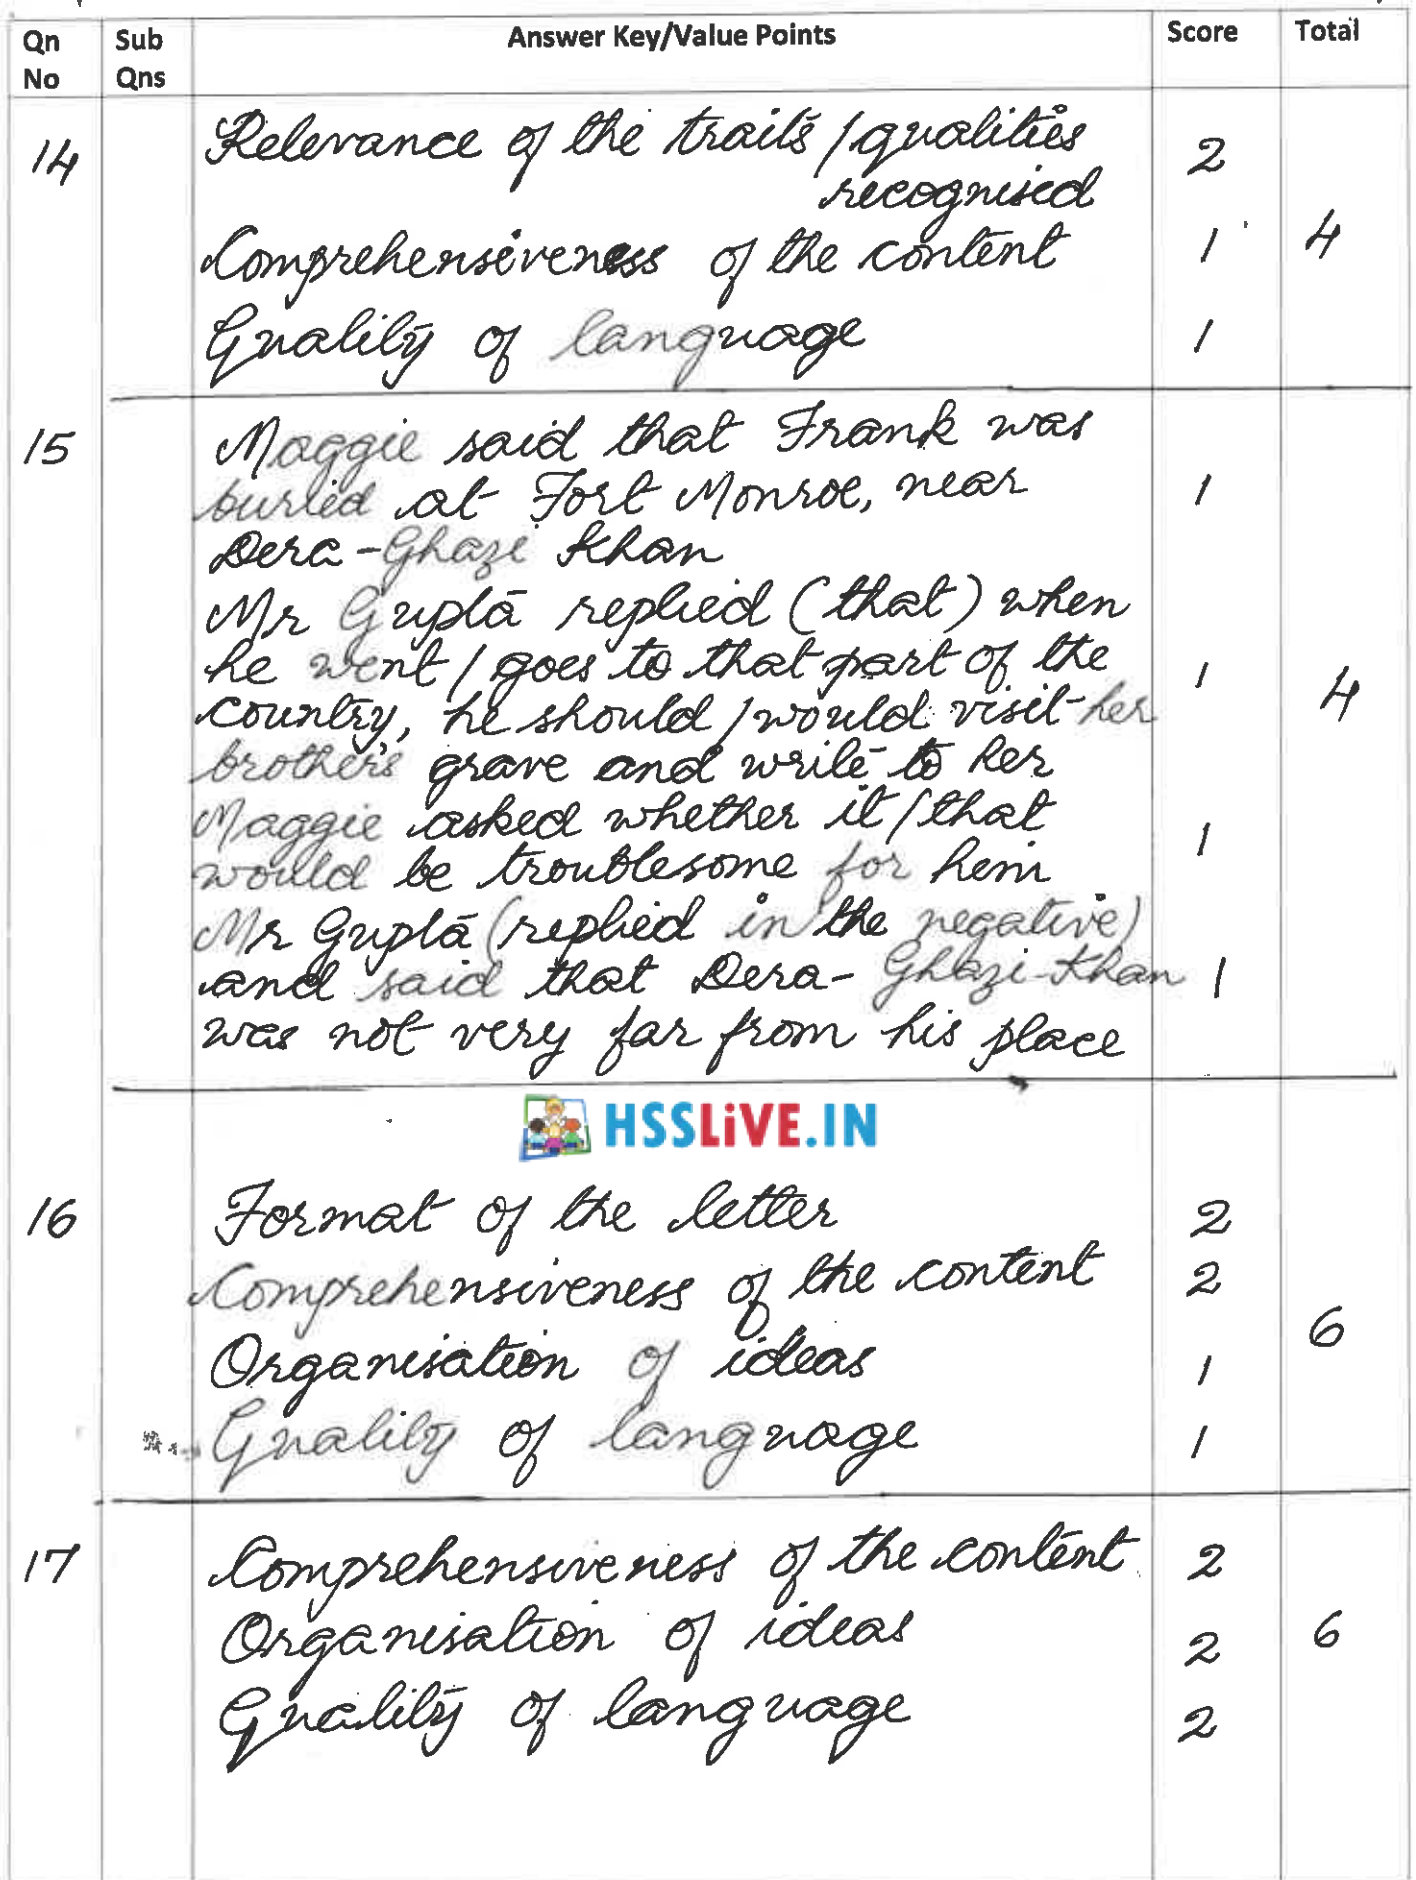 Qn No Sub Qns Answer Key/Value Points Score Total
14 Relevance of the traits / qualities 2
recognised
Comprehensiveness of the content 1 4
Quality of language 1
15 Maggie said that Frank was
buried at Fort Monroe, near 1
Dera-Ghazi Khan
Mr Gupta replied (that) when
he went / goes to that part of the 1
country, he should / would visit her 4
brother's grave and write to her
Maggie asked whether it / that
would be troublesome for him 1
Mr Gupta (replied in the negative)
and said that Dera-Ghazi-Khan 1
was not very far from his place
HSSLiVE.IN
16 Format of the letter 2
Comprehensiveness of the content 2
Organisation of ideas 1 6
Quality of language 1
17 Comprehensiveness of the content 2
Organisation of ideas 2 6
Quality of language 2